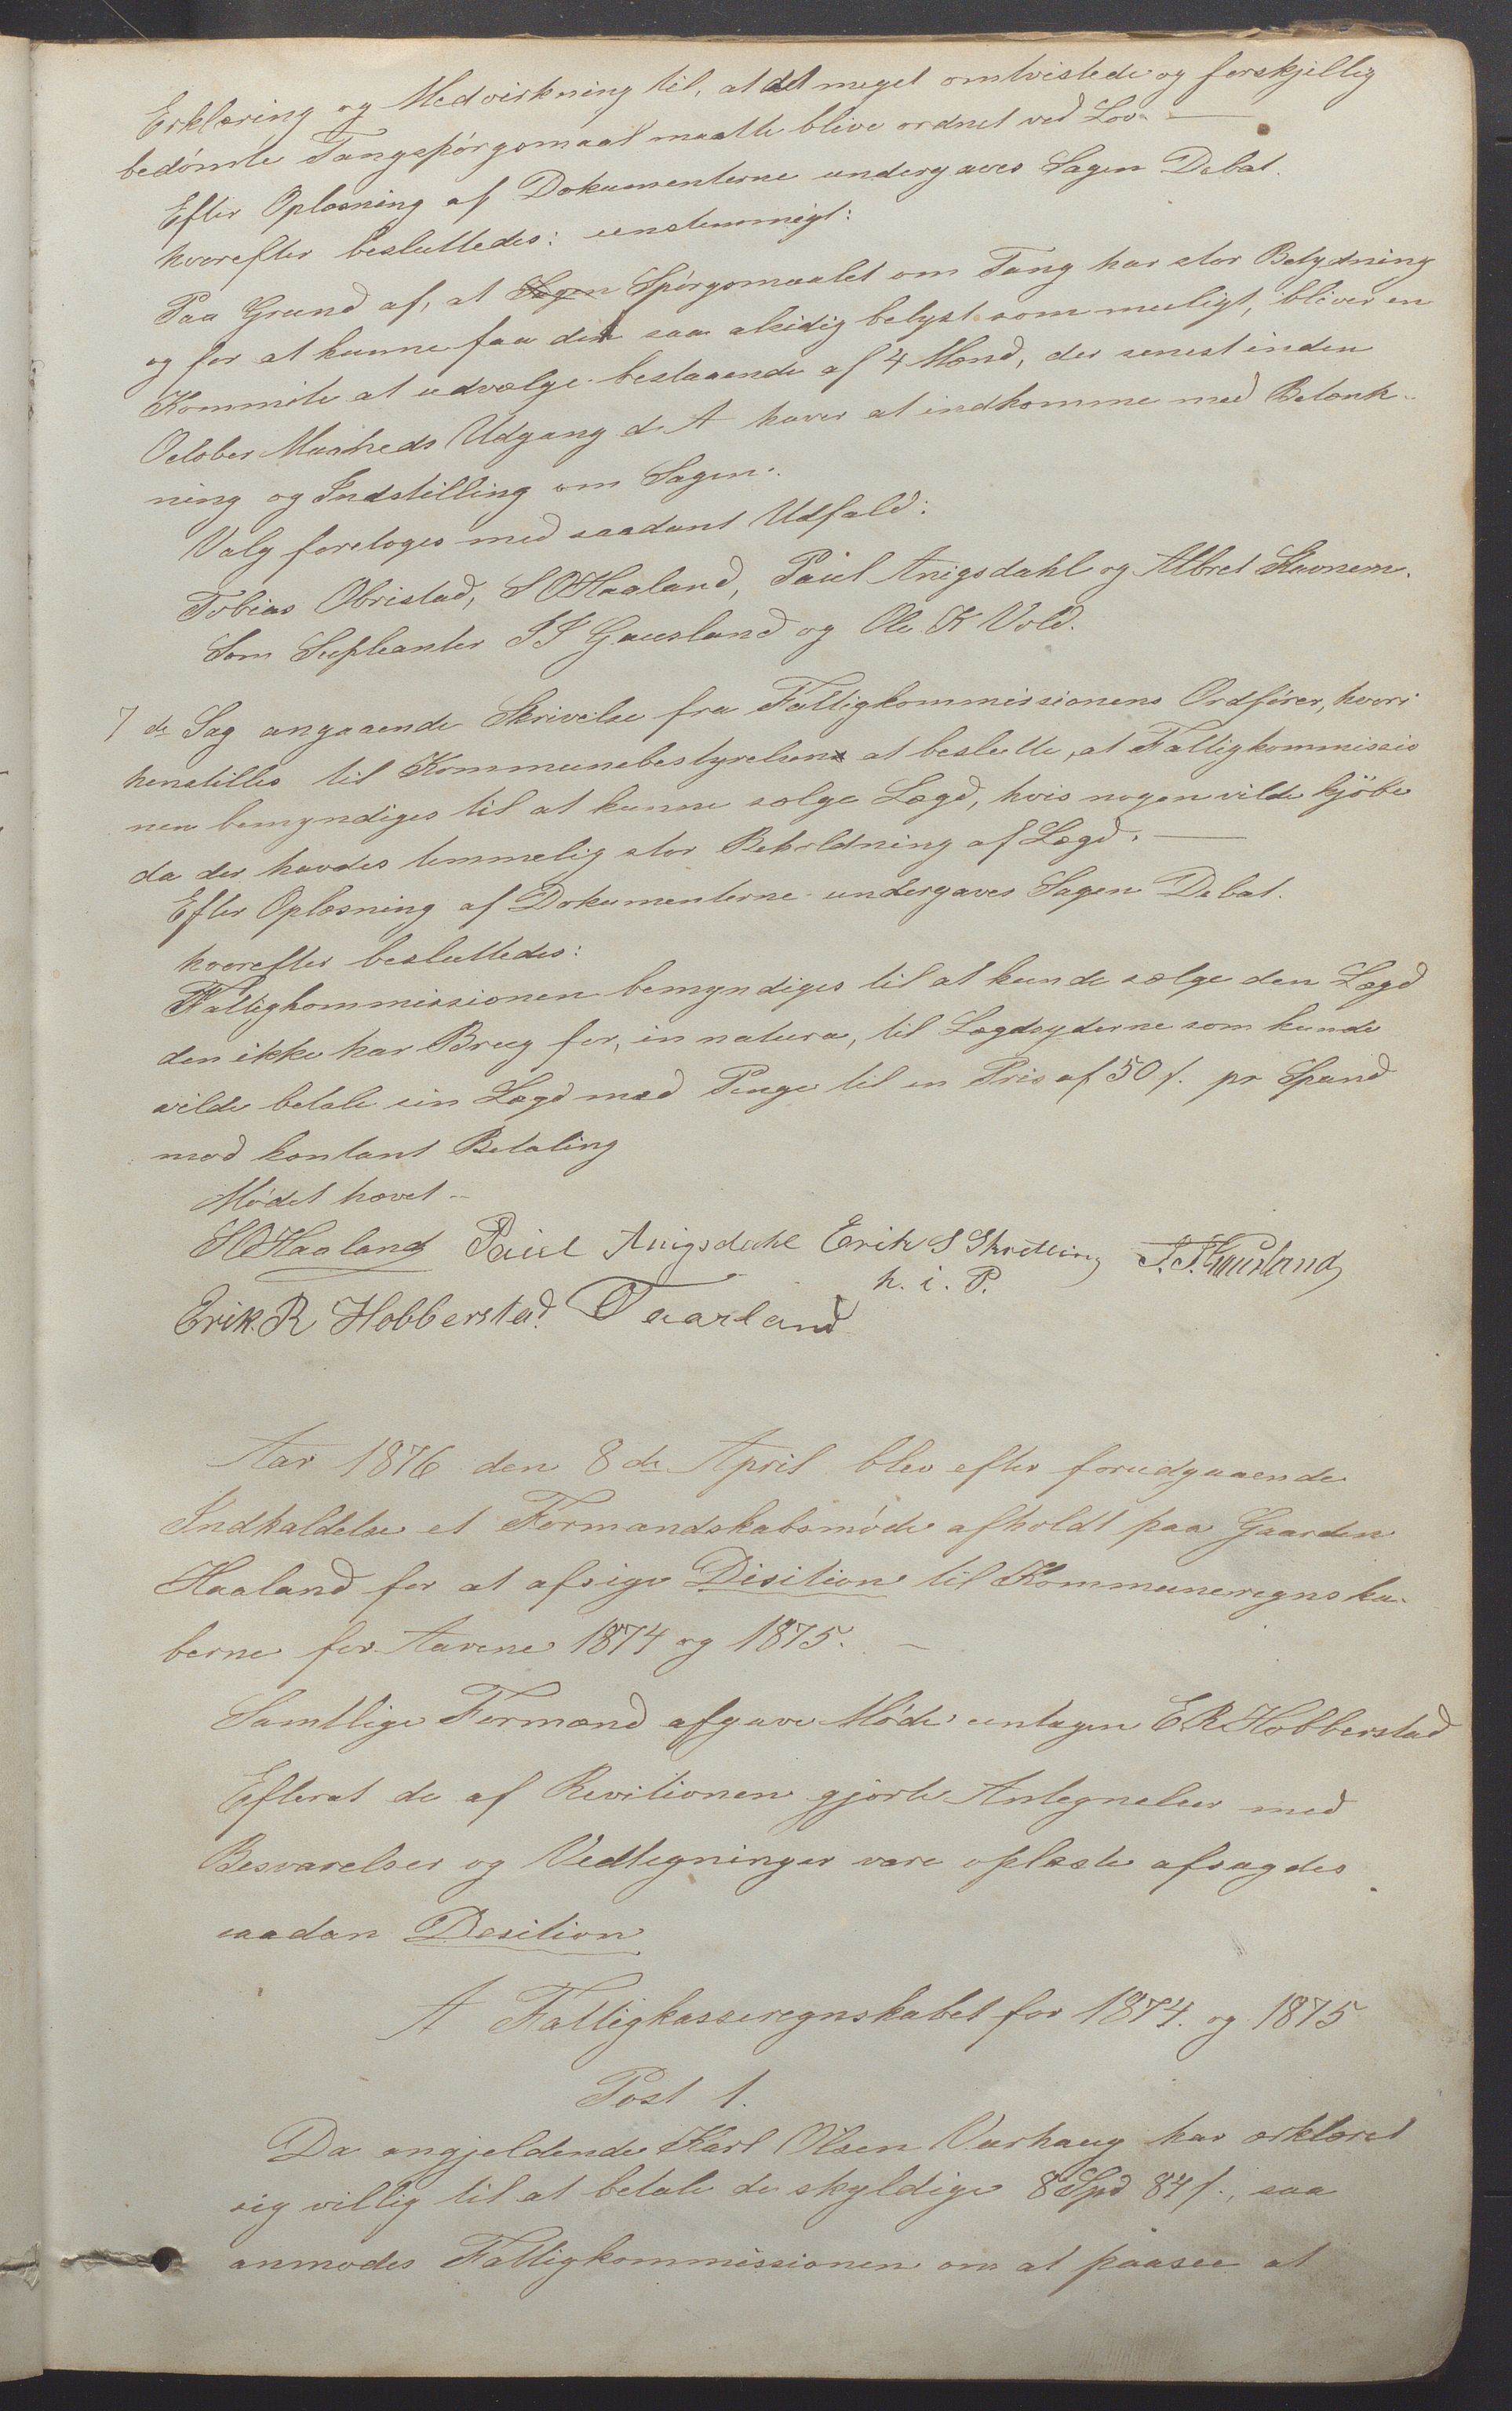 Erklæring og Medvirkning til, at det meget omtvistede og forskjellig
bedömte Tangspörgsmaal maatte blive ordnet ved Lov. —
Efter Oplæsning af Dokumenterne undergaves Sagen Debat.
hvorefter besluttedes: eenstemmigt:
Paa Grund af, at Sagen Spörgsmaalet om Tang har stor Betydning
og for at kunne faa den saa alsidig belyst som muligt, bliver en
Kommite at udvælge bestaaende af 4 Mænd, der senest inden
October Maaneds Udgang d. A haver at indkomme med Betænk-
ning og Indstilling om Sagen.
Valg foretoges med saadant Udfald:
Tobias Obristad, S O Haaland, Paul Anigsdahl og Albret Stavnem.
Som Supleanter I I Gausland og Ole K Vold.
7 de Sag angaaende Skrivelse fra Fattigkommissionens Ordförer, hvori
henstilles til Kommunebestyrelsen at beslutte, at Fattigkommissio
nen bemyndiges til at kunne sælge Lægd, hvis nogen vilde kjöbe
da der havdes temmelig stor Beholdning af Lægd. —
Efter Oplæsning af Dokumenterne undergaves Sagen Debat.
hvorefter besluttedes:
Fattigkommissionen bemyndiges til at kunde sælge den Lægd
den ikke har Brug for, in natura, til Lægdsyderne som kunde
vilde betale sin Lægd med Penge til en Pris af 50 s. pr Spand
mod kontant Betaling
Mödet hævet –
S O Haaland Paul Anigsdahl Erik S Skretting I. I. Gausland
h. i. P.
Erik. R Hobberstad. O Taarland
Aar 1876 den 8 de April blev efter forudgaaende
Indkaldelse et Formandskabsmöde afholdt paa Gaarden
Haaland for at afsige Disition til Kommuneregnska-
berne for Aarene 1874 og 1875. –
Samtlige Formænd afgave Möde untagen E R Hobberstad
Efterat de af Revitionen gjorte Antegnelser med
Besvarelser og Vedtegninger vare oplæste afsagdes
saadan Desition
A Fattigkasseregnskabet for 1874. og 1875
Post 1.
Da angjeldende Karl Olsen Varhaug har erklæret
sig villig til at betale de skyldige 8 Spd 84 s., saa
anmodes Fattigkommissionen om at paasee at